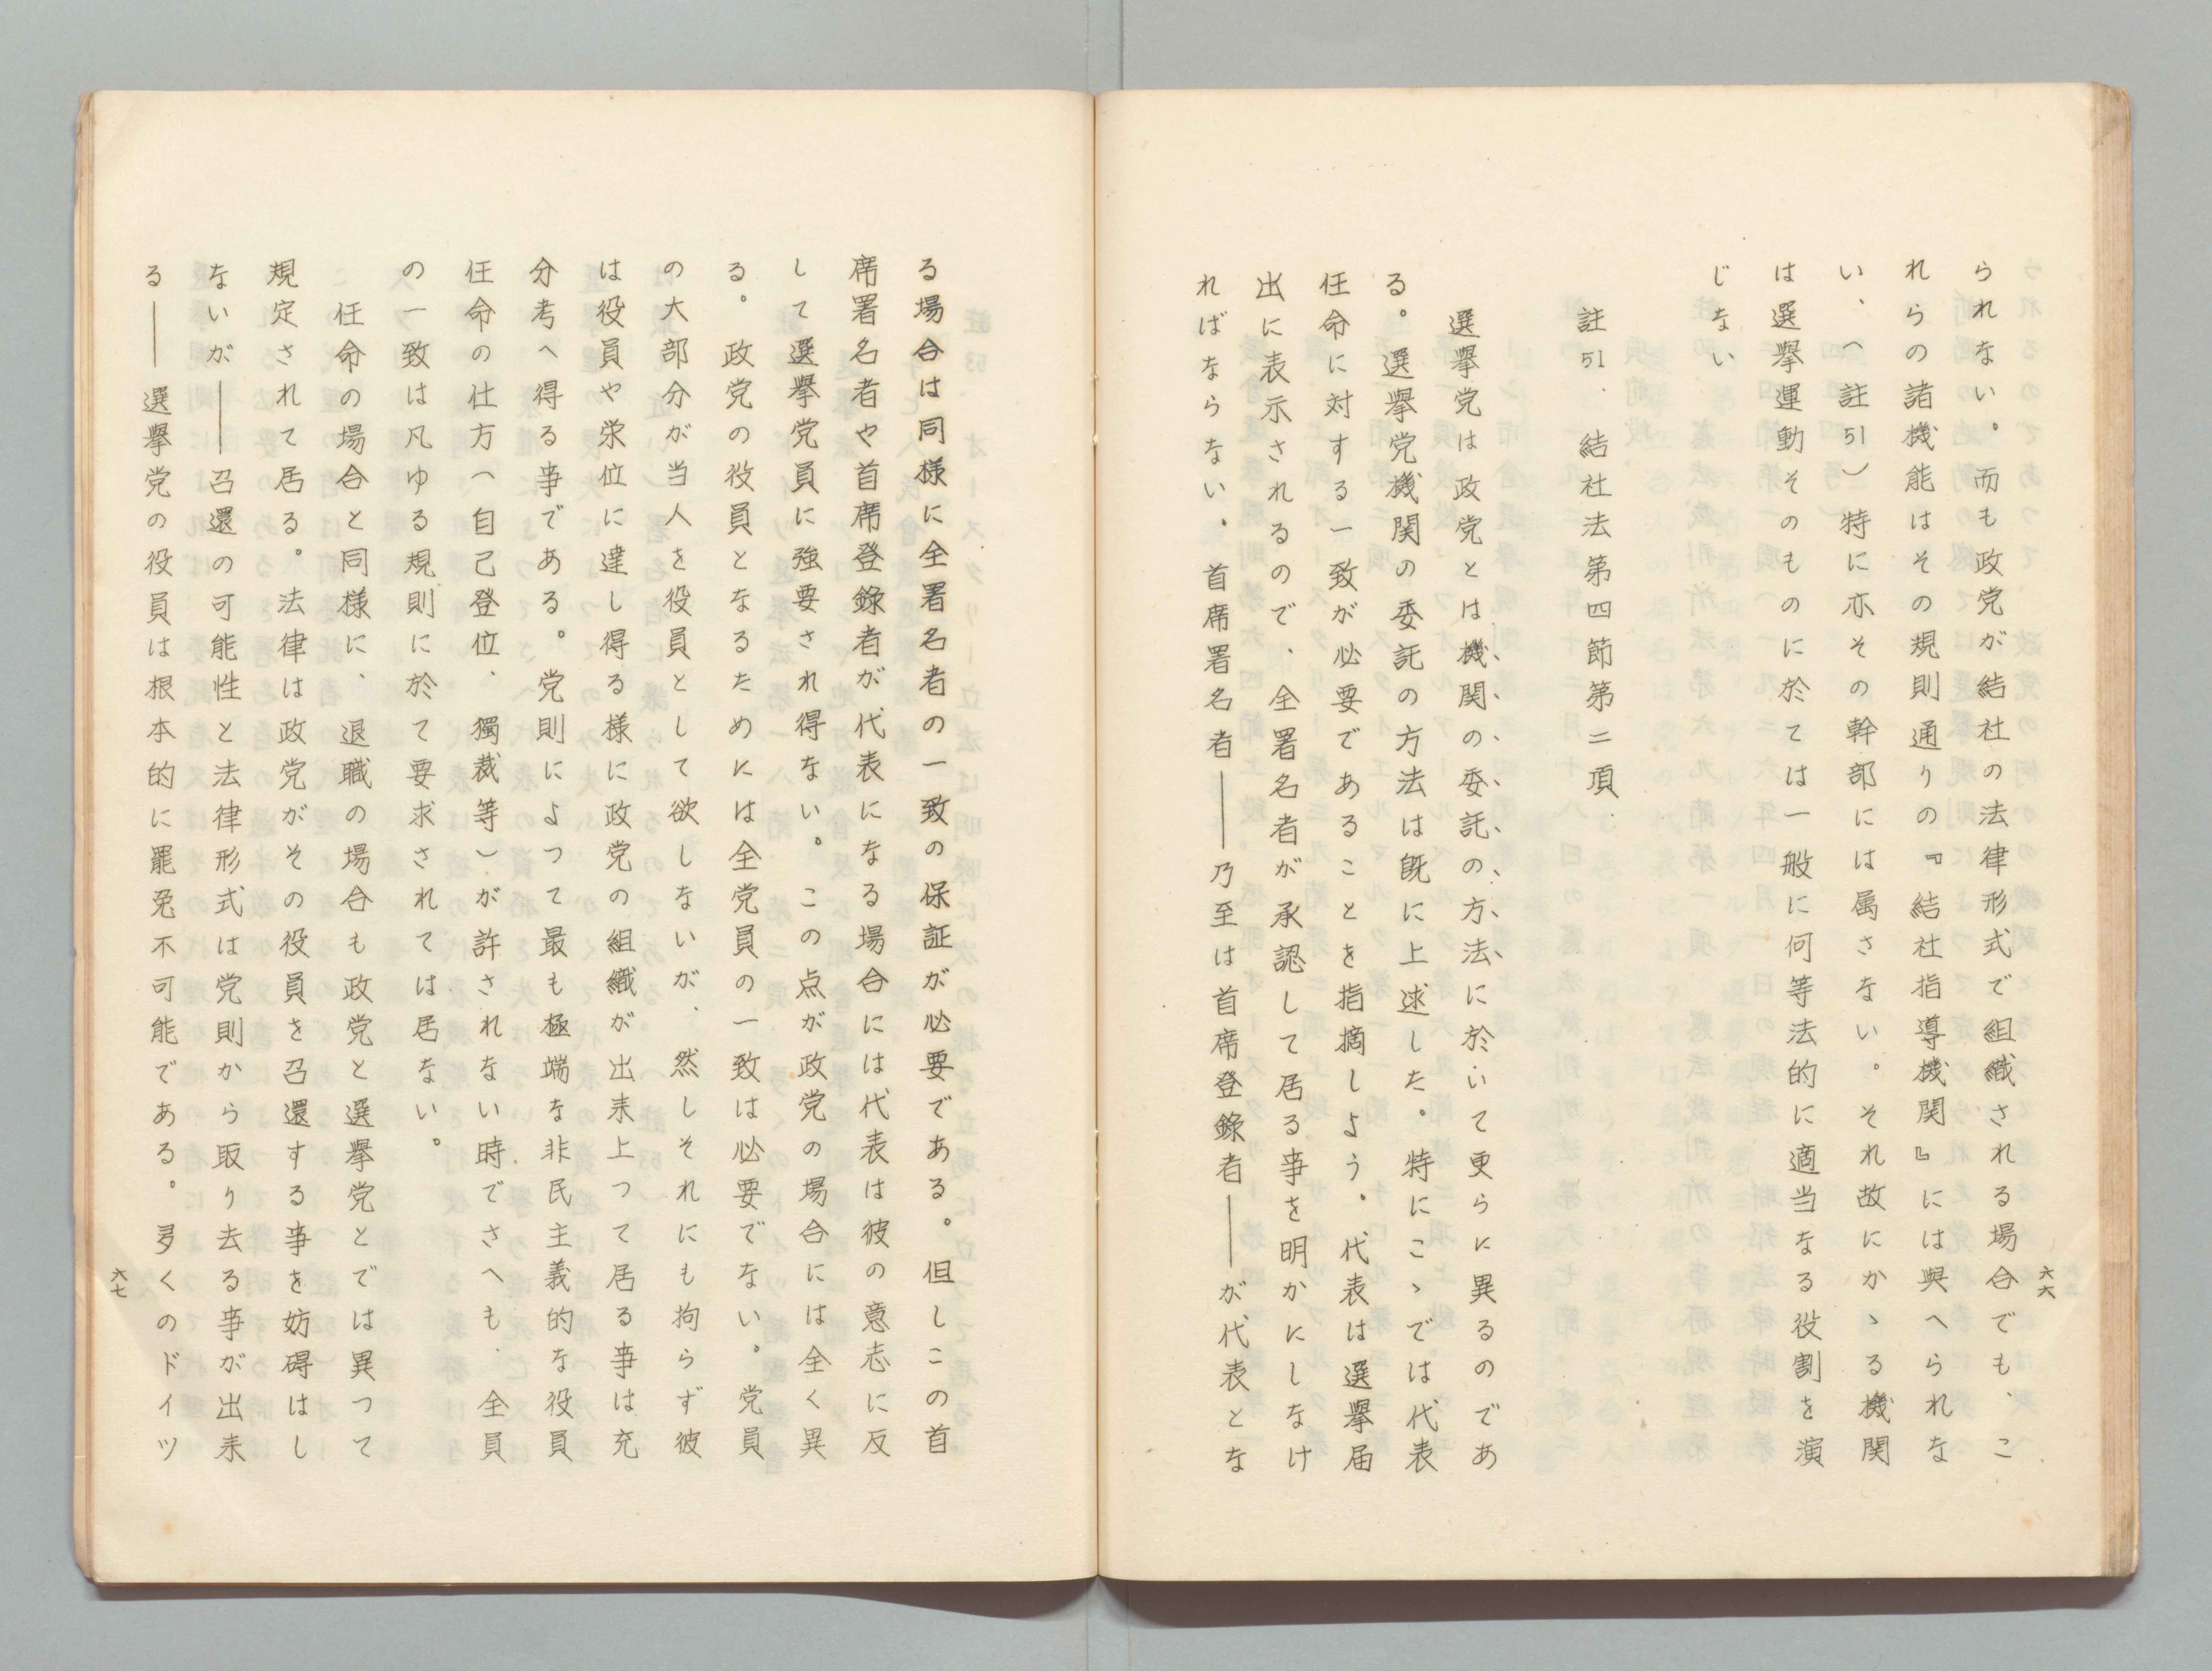 られない。而も政党が結社の法律形式で組織される場合でも、こ
れらの諸機能はその規則通りの『結社指導機関』には與へられな
い、（註51）特に亦その幹部には属さない。それ故にかゝる機関
は選擧運動そのものに於ては一般に何等法的に適当なる役割を演
じない
註51．結社法第四節第二項．
選擧党は政党とは機関の委託の方法に於いて更らに異るのであ
る。選擧党機関の委託の方法は既に上述した。特にこゝでは代表
任命に対する一致が必要であることを指摘しよう。代表は選擧届
出に表示されるので、全署名者が承認して居る事を明かにしなけ
ればならない．首席署名者――乃至は首席登錄者――が代表とな
六六
る場合は同様に全署名者の一致の保証が必要である。但しこの首
席署名者や首席登錄者が代表になる場合には代表は彼の意志に反
して選擧党員に強要され得ない。この点が政党の場合には全く異
る。政党の役員となるためには全党員の一致は必要でない。党員
の大部分が当人を役員として欲しないが、然しそれにも拘らず彼
は役員や栄位に達し得る様に政党の組織が出来上つて居る事は充
分考へ得る事である。党則によつて最も極端な非民主義的な役員
任命の仕方（自己登位、獨裁等）が許されない時でさへも、全員
の一致は凡ゆる規則に於て要求されては居ない。
任命の場合と同様に、退職の場合も政党と選擧党とでは異つて
規定されて居る。法律は政党がその役員を召還する事を妨碍はし
ないが――召還の可能性と法律形式は党則から取り去る事が出来
る――選擧党の役員は根本的に罷免不可能である。多くのドイツ
六七